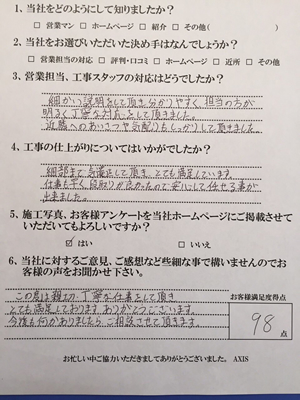 1、当社をどのようにして知りましたか？
□ 営業マン □ ホームページ □ 紹介 □ その他( )
2、当社をお選びいただいた決め手はなんでしょうか？
□ 営業担当の対応 □ 評判・口コミ □ ホームページ □ 近所 □ その他
3、営業担当、工事スタッフの対応はどうでしたか？
細かい説明をして頂き分かりやすく、担当の方が
明るく丁寧な対応をして頂きました。
近隣へのあいさつや気配りもしっかりして頂きました。
4、工事の仕上がりについてはいかがでしたか？
細部まで気遣して頂き、とても満足しています。
仕事も早く段取りが良かったので安心して任せる事が
出来ました。
5、施工写真、お客様アンケートを当社ホームページにご掲載させて
いただいてもよろしいですか？
☑ はい □ いいえ
6、当社に対するご意見、ご感想など些細な事で構いませんのでお
客様の声をお聞かせ下さい。
この度は親切、丁寧な仕事をして頂き
とても満足しております。ありがとうございます。
今後も何かありましたら ご相談させて頂きます。
お客様満足度得点
98点
お忙しい中ご協力いただきましてありがとうございました。 AXIS